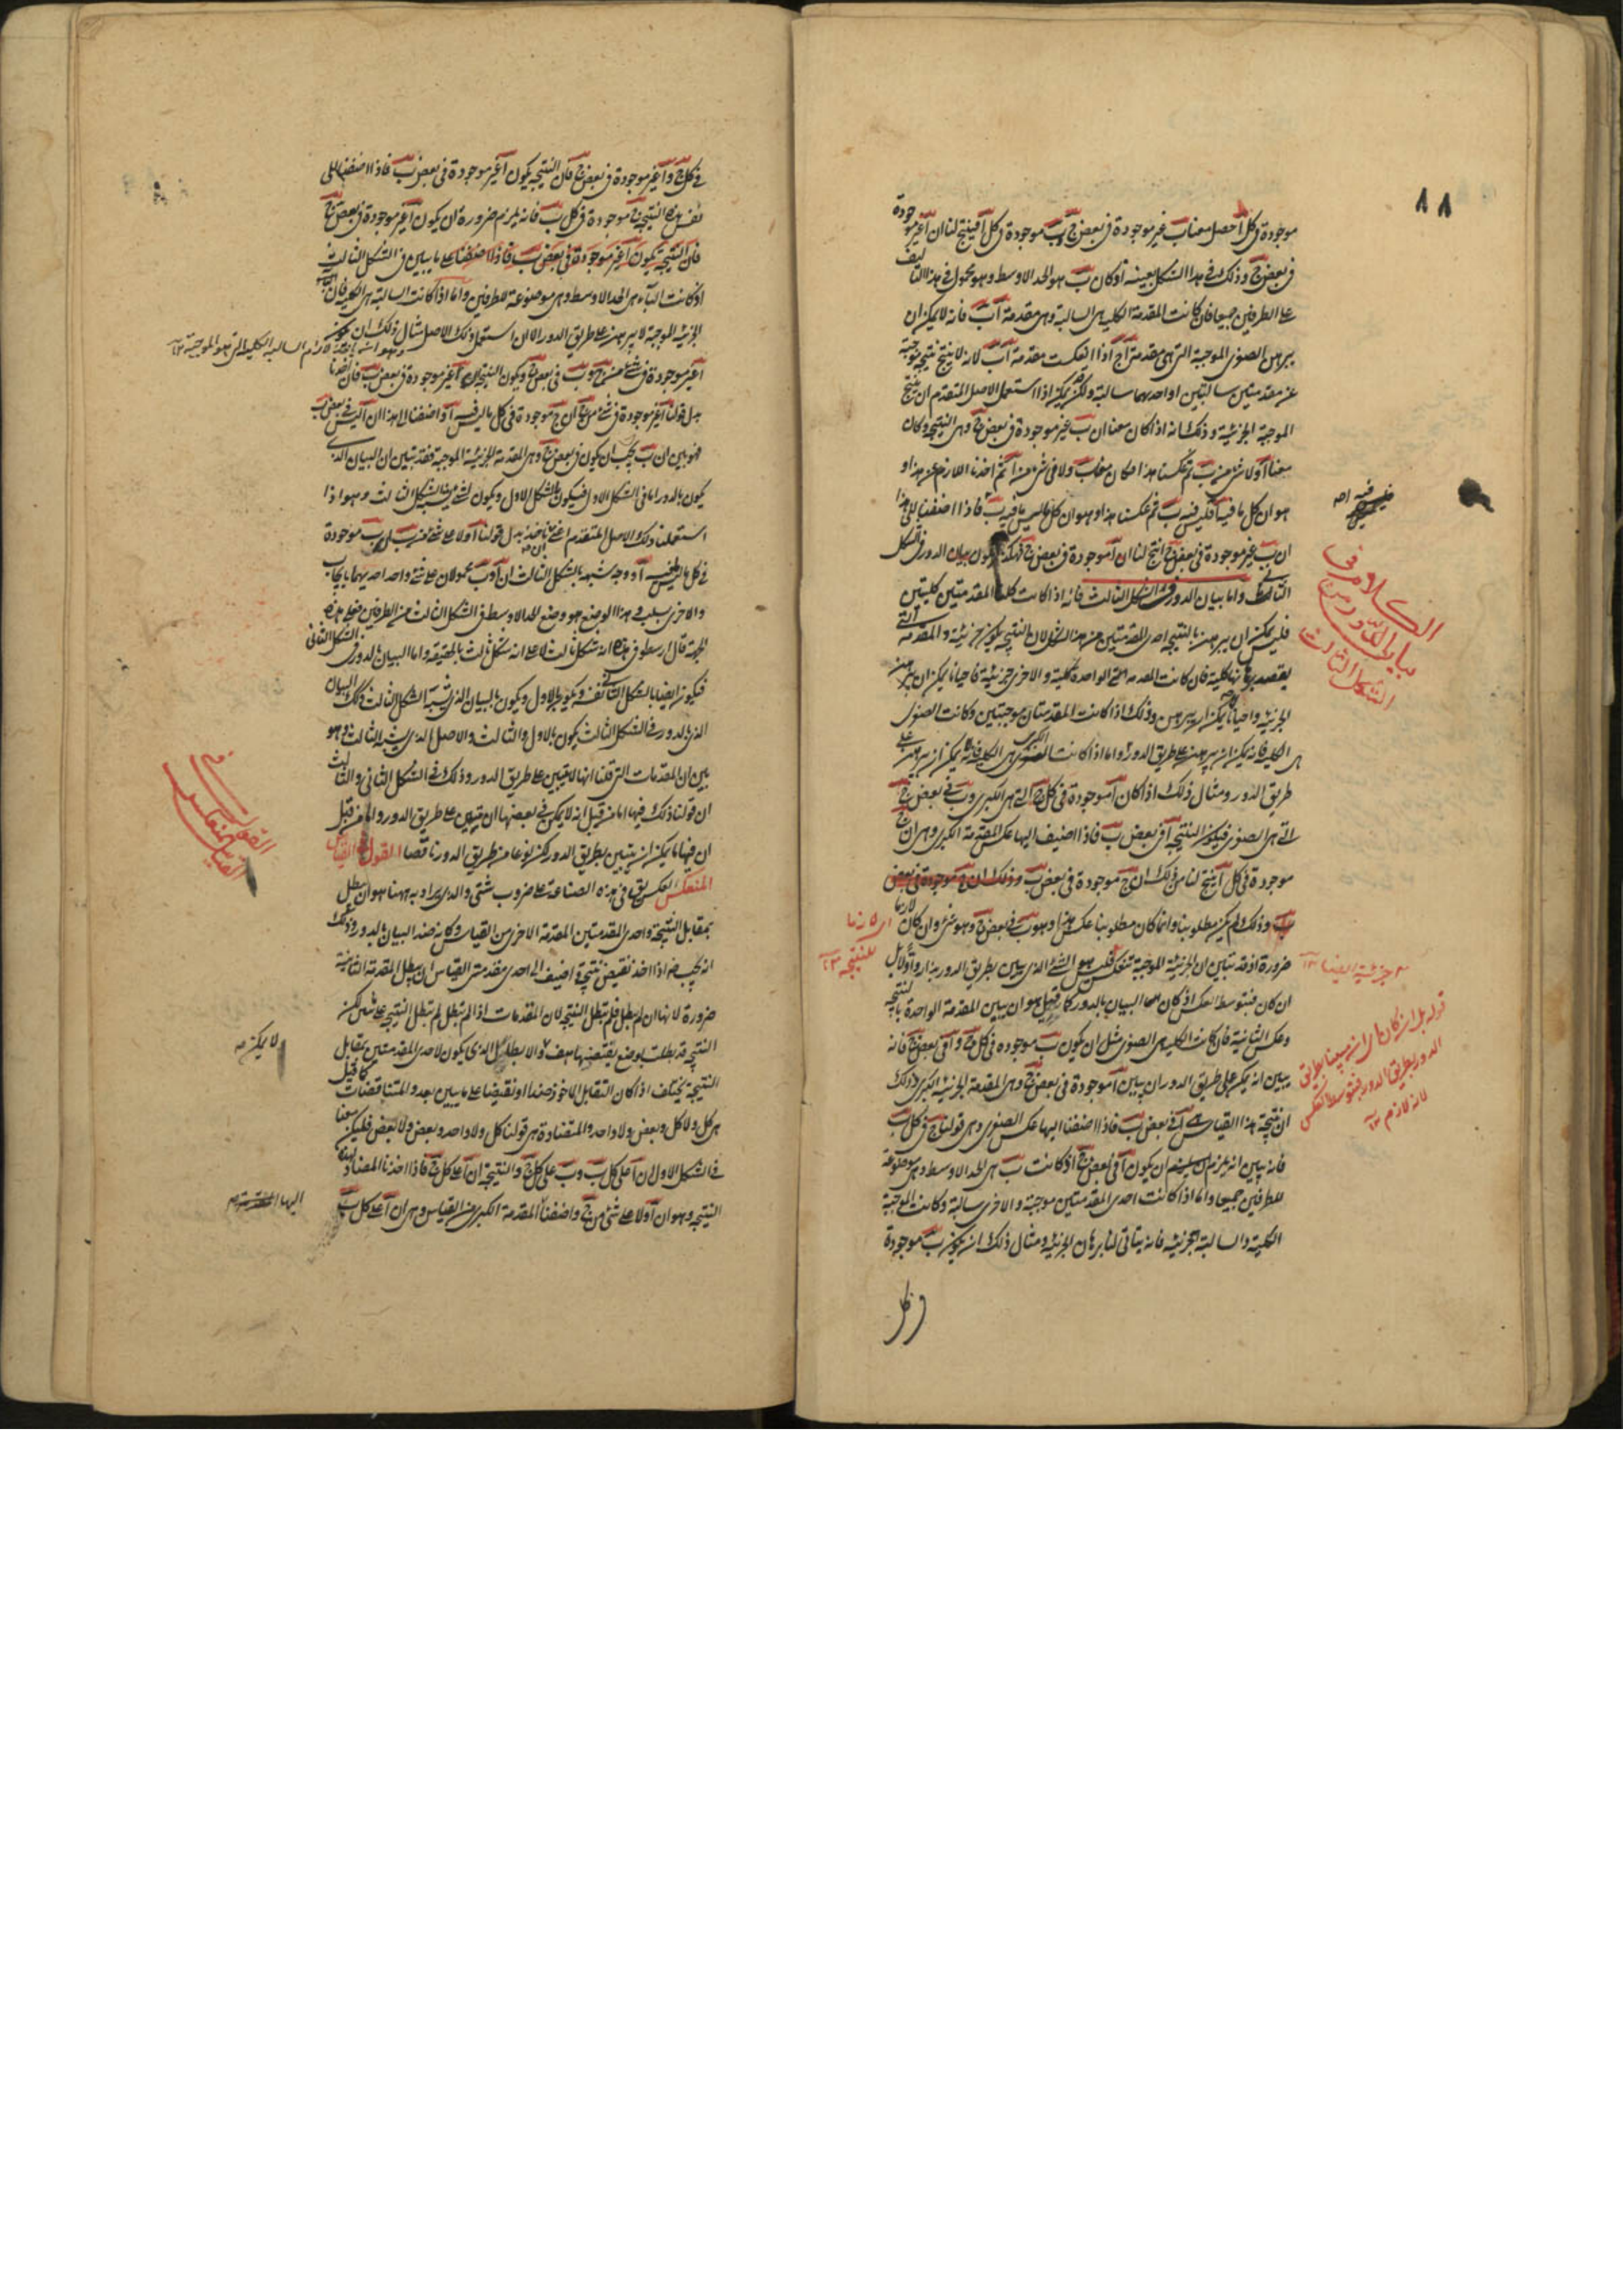 ٨٨
موجودة في كل آ حصل معنا ب غير موجودة في بعض ج و ب موجودة في كل آ فينتج لنا ان آ غير موجودة
في بعض ج وذلك في هذا الشكل بعينه اذ كان ب هو الحد الاوسط وهو محمول في هذا التاليف
على الطرفين جميعا فان كانت المقدمة الكلية هي السالبة وهي مقدمة آب فانه لا يمكن ان
يبرهن الصغرى الموجبة التي هي مقدمة آج اذا انعكست مقدمة آب لانه لا ينتج نتيجة موجبة
عن مقدمتين سالبتين او احدهما سالبة ولكن يمكن اذا استعمل الاصل المتقدم ان ينتج
الموجبة الجزئية وذلك انه اذا كان معنا ان ب غير موجودة في بعض ج وهي النتيجة وكان
معنا آ ولا شيء من ب ثم عكسنا هذا فكان معنا ب ولا في شيء من آ ثم اخذنا اللازم عن هذا و
هو ان كل ما فيه آ فليس فيه ب ثم عكسنا هذا وهو ان كل ما ليس فيه ب فاذا اضفنا الى هذا
ان ب غير موجودة في بعض ج انتج لنا ان آ موجودة في بعض ج فهكذا يكون بيان الدور في الشكل
الثاني واما بيان الدور في الشكل الثالث فانه اذا كانت كلتا المقدمتين كليتين
فليس يمكن ان يبرهن بالنتيجة احدى المقدمتين من هذا الشكل لان النتيجة تكون جزئية والمقدمة التي
يقصد برهانها كلية فان كانت المقدمة الواحدة كلية والاخرى جزئية فاحيانا يمكن ان يبرهن
الجزئية واحيانا لا يمكن ان يبرهن وذلك اذا كانت المقدمتان موجبتين وكانت الصغرى
هي الكلية فانه يمكن ان يبرهن على طريق الدور واما اذا كانت الكبرى هي الكلية فانه لا يمكن ان يبرهن على
طريق الدور ومثال ذلك اذا كان آ موجودة في كل ج التي هي الكبرى و ب في بعض ج
التي هي الصغرى فيكون النتيجة آ في بعض ب فاذا اضيف اليها عكس المقدمة الكبرى وهي ان ج
موجودة في كل آ ينتج لنا من ذلك ان ج موجودة في بعض ب وذلك ان ج موجودة في بعض
ب وذلك لم يكن مطلوبنا وانما كان مطلوبنا عكس هذا وهو ب في بعض ج وهو شيء وان كان لازما
ضرورة اذ قد تبين ان الجزئية الموجبة تنعكس فليس هو الشيء الذي يبين بطريق الدور بذاته واولا بل
ان كان فبتوسط العكس اذ كان هذا البيان بالدور كما قيل هو ان يبين المقدمة الواحدة بالنتيجة
وعكس الثانية فان كانت الكلية هي الصغرى مثل ان يكون ب موجودة في كل ج و آ في بعض ج فانه
يبين انه يمكن على طريق الدور ان يبين آ موجودة في بعض ج وهي المقدمة الجزئية الكبرى وذلك
ان نتيجة هذا القياس هي آ في بعض ب فاذا اضفنا اليها عكس الصغرى وهي قولنا ج في كل ب
فانه يبين انه يلزم ان يكون آ في بعض ج اذ كانت ب هي الحد الاوسط وهي موضوعة
للطرفين جميعا واما اذا كانت احدى المقدمتين موجبة والاخرى سالبة وكانت الموجبة
الكلية والسالبة الجزئية فانه يتاتى لنا برهان الجزئية ومثال ذلك ان يكون ب موجودة
في كل
الكلام في
بيان الدور من
الشكل الثالث
اي لازما
للنتيجة
جزئية ايضا
قوله بل ان كان
الدور بطريق الدور فبتوسط العكس
لانه لازم
في كل ج و آ غير موجودة في بعض ج فان النتيجة يكون آ غير موجودة في بعض ب فاذا اضفنا الى
نفس هذه النتيجة ج موجودة في كل ب فانه يلزم ضرورة ان يكون آ غير موجودة في بعض ج
فان النتيجة تكون آ غير موجودة في بعض ب فاذا اضفنا على ما يبين في الشكل الثالث
اذ كانت الباء هي الحد الاوسط وهي موضوعة للطرفين واما اذا كانت السالبة هي الكلية فان
الجزئية الموجبة لا يبرهن على طريق الدور الا ان استعمل ذلك الاصل مثال ذلك ان يكون
آ غير موجودة في شيء من ج و ب في بعض ج ويكون النتيجة آ غير موجودة في بعض ب فان اخذنا
بدل قولنا آ غير موجودة في شيء من ج ان ج موجودة في كل ما ليس فيه آ واضفنا الى هذا ان آ ليس في بعض ب
فهو بين ان ب يجب ان يكون في بعض ج وهي المقدمة الجزئية الموجبة فقد تبين ان البيان الذي
يكون بالدور اما في الشكل الاول فيكون بالشكل الاول ويكون لشيء شبيه بالشكل الثالث وهو اذا
استعملنا ذلك الاصل المتقدم اعني ان ناخذ بدل قولنا آ ولا على شيء من ب بل ب موجودة
في كل ما ليس آ ووجه شبهه بالشكل الثالث ان آ و ب محمولان على شيء واحد احديهما بايجاب
والاخرى بسلب وهذا الوضع هو وضع الحد الاوسط في الشكل الثالث من الطرفين فعلى هذه
الجهة قال ارسطو في هذا انه شكل ثالث لا على انه شكل ثالث بالحقيقة واما البيان بالدور في الشكل الثاني
فيكون ايضا بالشكل الثاني نفسه ويكون بالاول ويكون بالبيان الذي شبه الشكل الثالث وكذلك البيان
الذي بالدور في الشكل الثالث يكون بالاول والثالث والاصل الذي يشبه الثالث وهو
بين ان المقدمات التي قلنا انها لا تتبين على طريق الدور وذلك في الشكل الثاني والثالث
ان قولنا ذلك فيها اما من قبل انه لا يمكن في بعضها ان تبين على طريق الدور واما من قبل
ان فيها ما يمكن ان يتبين بطريق الدور لكن نوعا من طريق الدور ناقصا القول في القياس
المنعكس العكس يق في هذه الصناعة على ضروب شتى والذي يراد به ههنا هو ان يبطل
بمقابل النتيجة واحدى المقدمتين المقدمة الاخرى من القياس وكانه ضد البيان بالدور وذلك
انه يجب متى اذا اخذ نقيض نتيجة واضيف الى احدى مقدمتي القياس ان يبطل المقدمة الثانية
ضرورة لانها ان لم تبطل فلم تبطل النتيجة لان المقدمات اذا لم تبطل لم تبطل النتيجة لكن
النتيجة قد بطلت بوضع نقيضها هف والابطال الذي يكون لاحدى المقدمتين بمقابل
النتيجة يختلف اذا كان التقابل الماخوذ ضدا او نقيضا على ما يبين بعد والمتناقضات كما قيل
هي كل ولا كل وبعض ولا واحد والمتضادة هي قولنا كل ولا واحد وبعض ولا بعض فليكن معنا
في الشكل الاول ان آ على كل ب و ب على كل ج والنتيجة ان آ على كل ج فاذا اخذنا المضاد لهذه
النتيجة وهو ان آ ولا على شيء من ج واضفنا المقدمة الكبرى من القياس وهي ان آ على كل ب
القول في
القياس المنعكس
لا يمكن
اليها